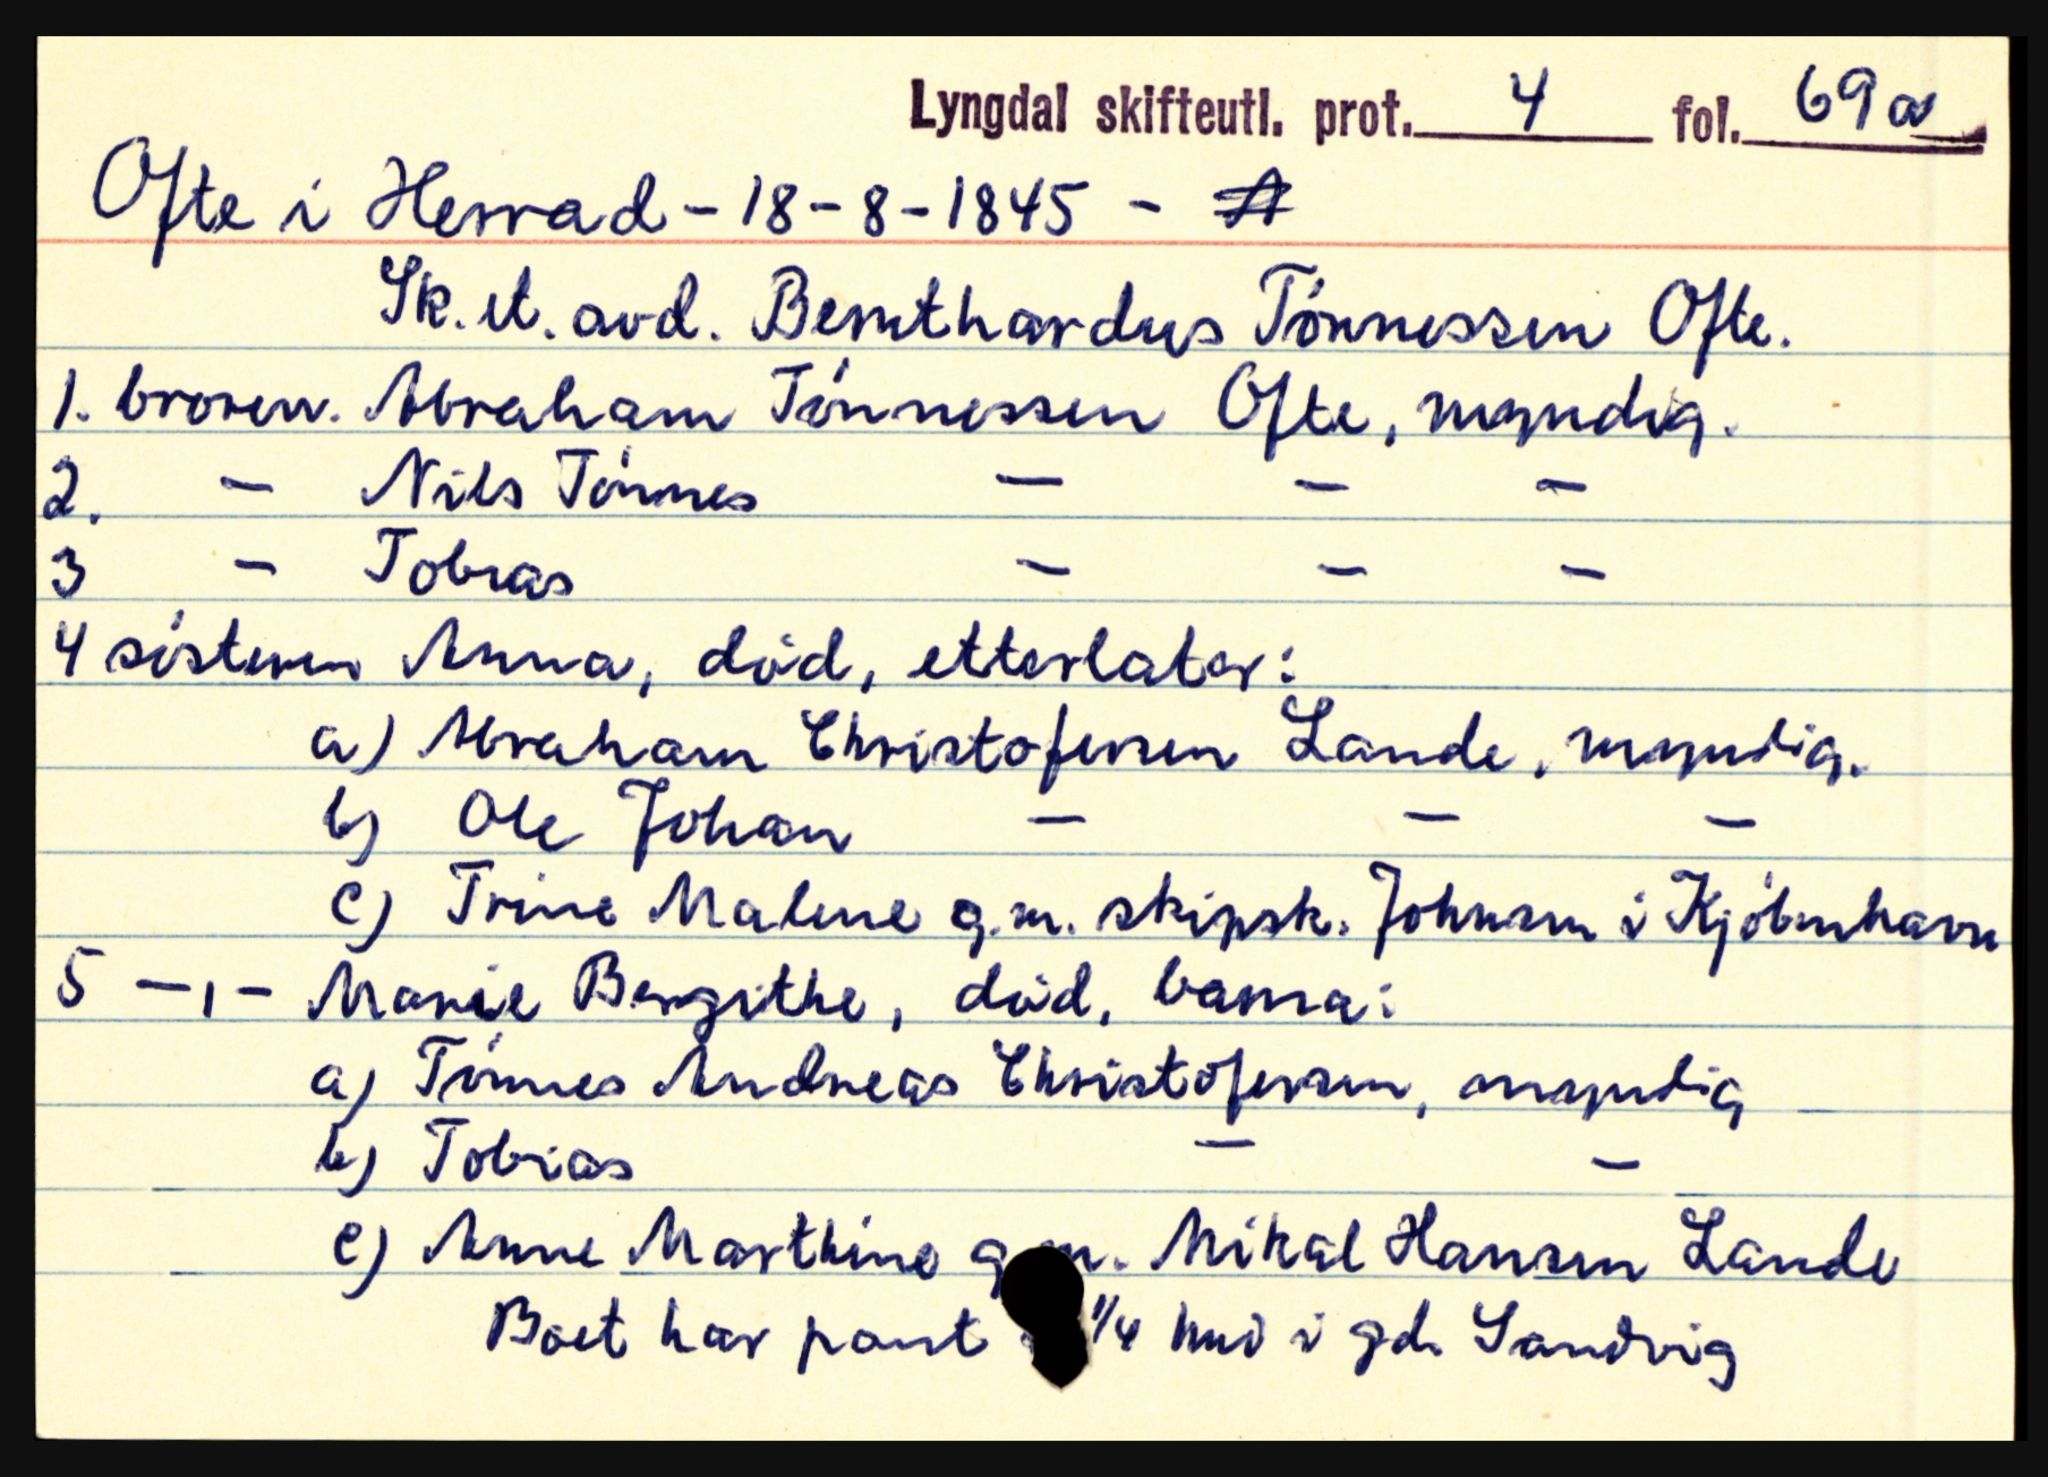 Lyngdal skifteutl. prot. 4 fol. 69a
Ofte i Herrad - 18-8-1845 -
Sk. et. avd. Bernthardus Tónnessen Ofte.
1. broren. Abraham Tónnessen Ofte, myndig.
2. - Nils Tónnes - - -
3 - Tobias - - -
4 sósteren Anna, död, etterlater:
a) Abraham Christofersen Lande, myndig.
b) Ole Johan - - -
c) Trine Malene g.m. skipsk. Johnsen i Kjóbenhavn
5 -,- Marie Bergithe, död, barna:
a) Tónnes Andreas Christofersen, myndig
b) Tobias - -
c) Anne Marthine g.m. Mikal Hansen Lande
Boet har pant 1/4 hud i gd. Sandvig